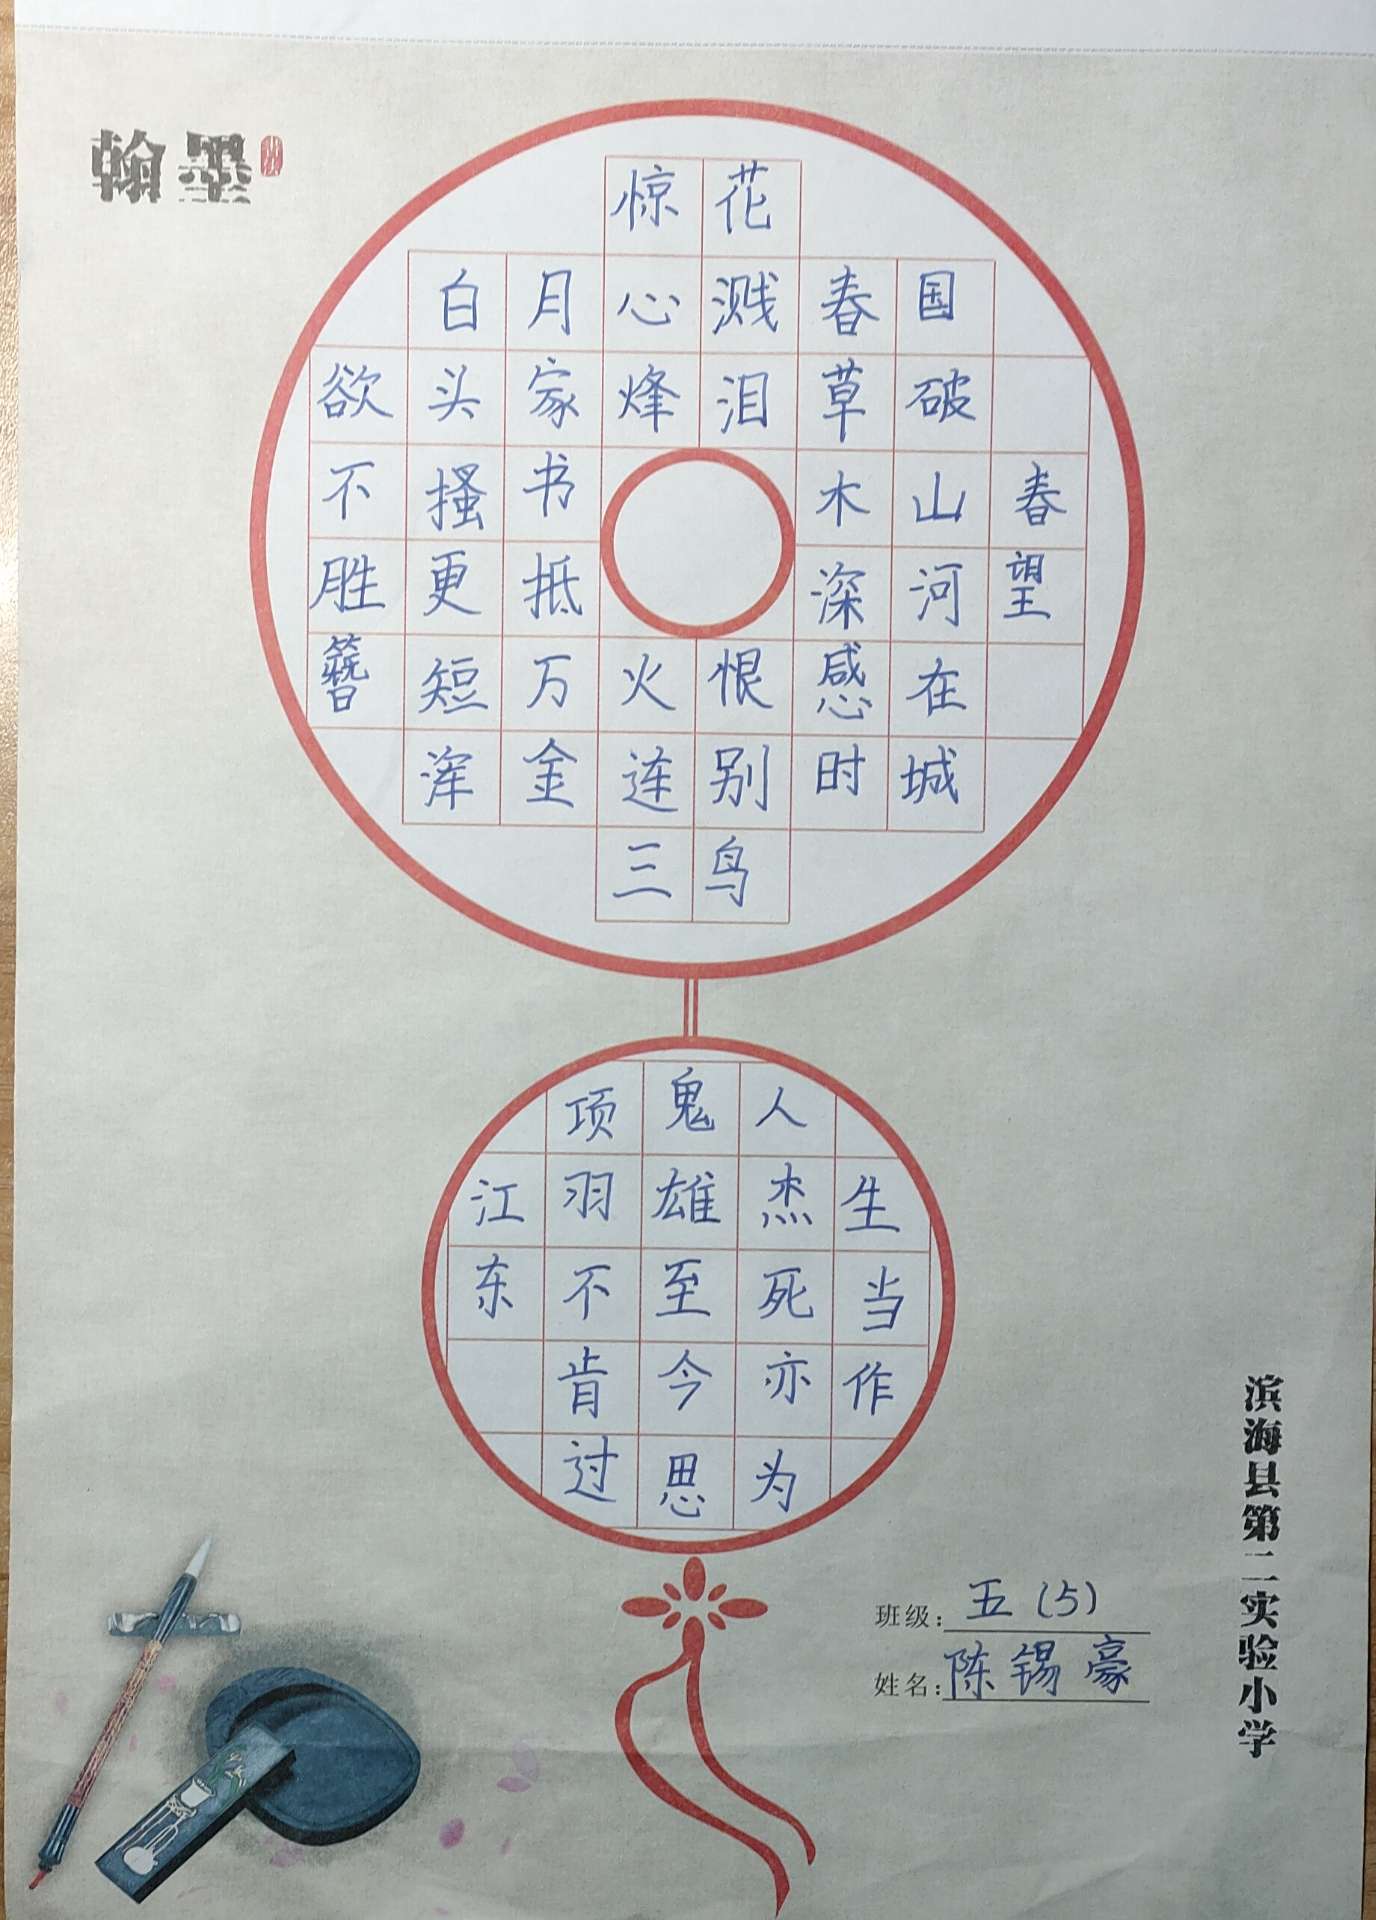 翰墨
春望
国破山河在城
春草木深感时
花溅泪恨别鸟
惊心烽火连三
月家书抵万金
白头搔更短浑
欲不胜簪
生当作
人杰死亦为
鬼雄至今思
项羽不肯过
江东
班级：五（5）
姓名：陈锡豪
滨海县第二实验小学